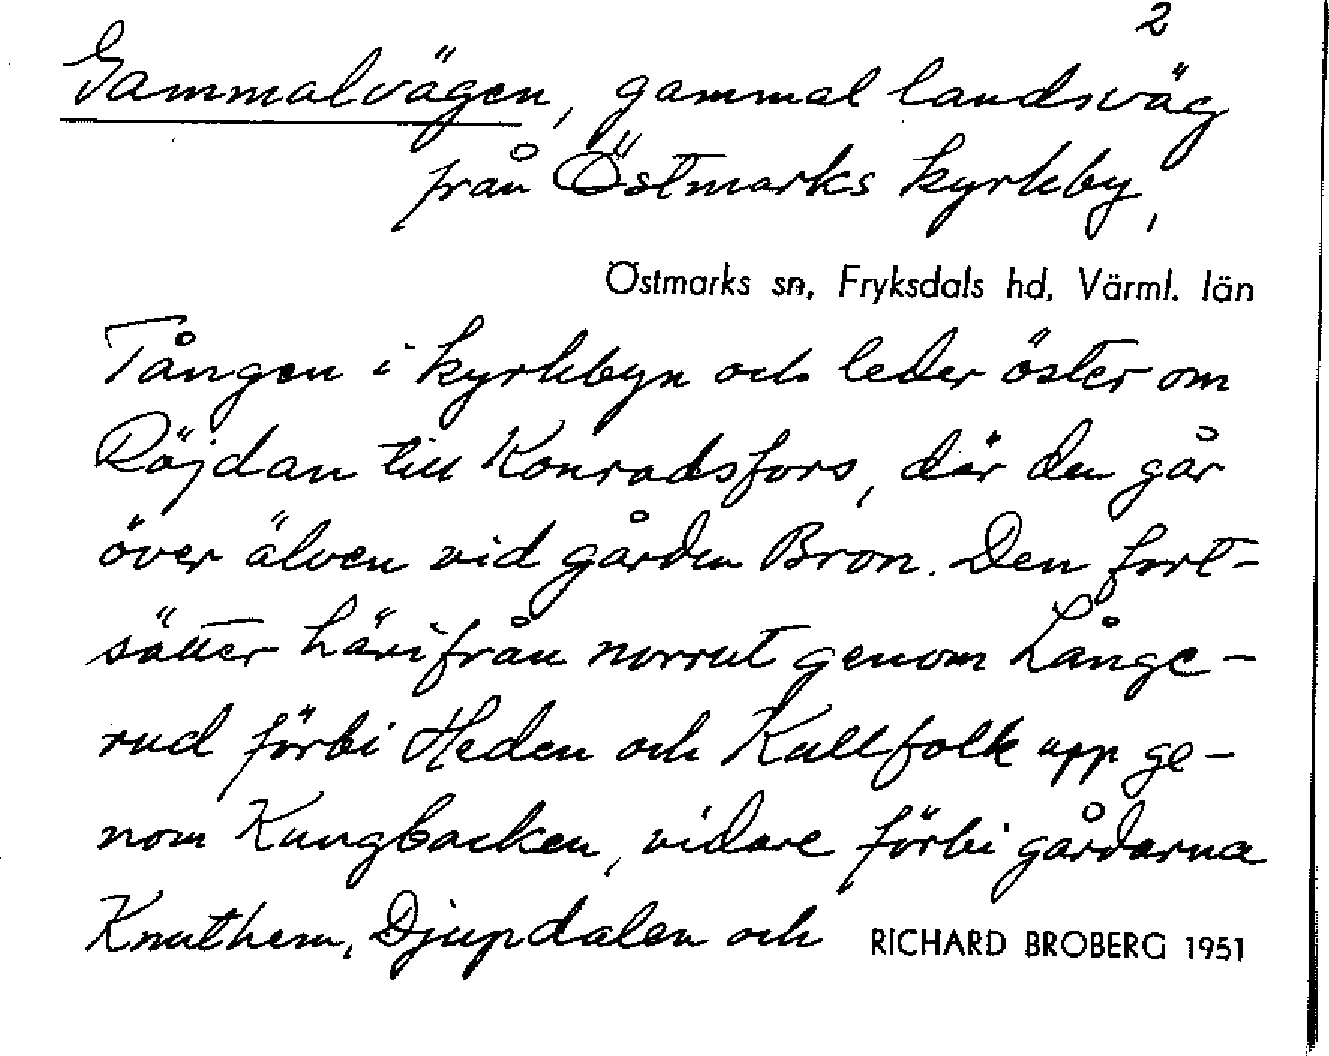 2
Gammalvägen, gammal landsväg
från Östmarks kyrkby,
Östmarks sn, Fryksdals hd, Värml. län
Tången i kyrkbyn och leder öster om
Röjdan till Konradsfors, där den går
över älven vid gården Bron. Den fort-
sätter härifrån norrut genom Långe-
rud förbi Heden och Kallfolk upp ge-
nom Kungbacken, vidare förbi gårdarna
Knuthem, Djupdalen och
RICHARD BROBERG 1951